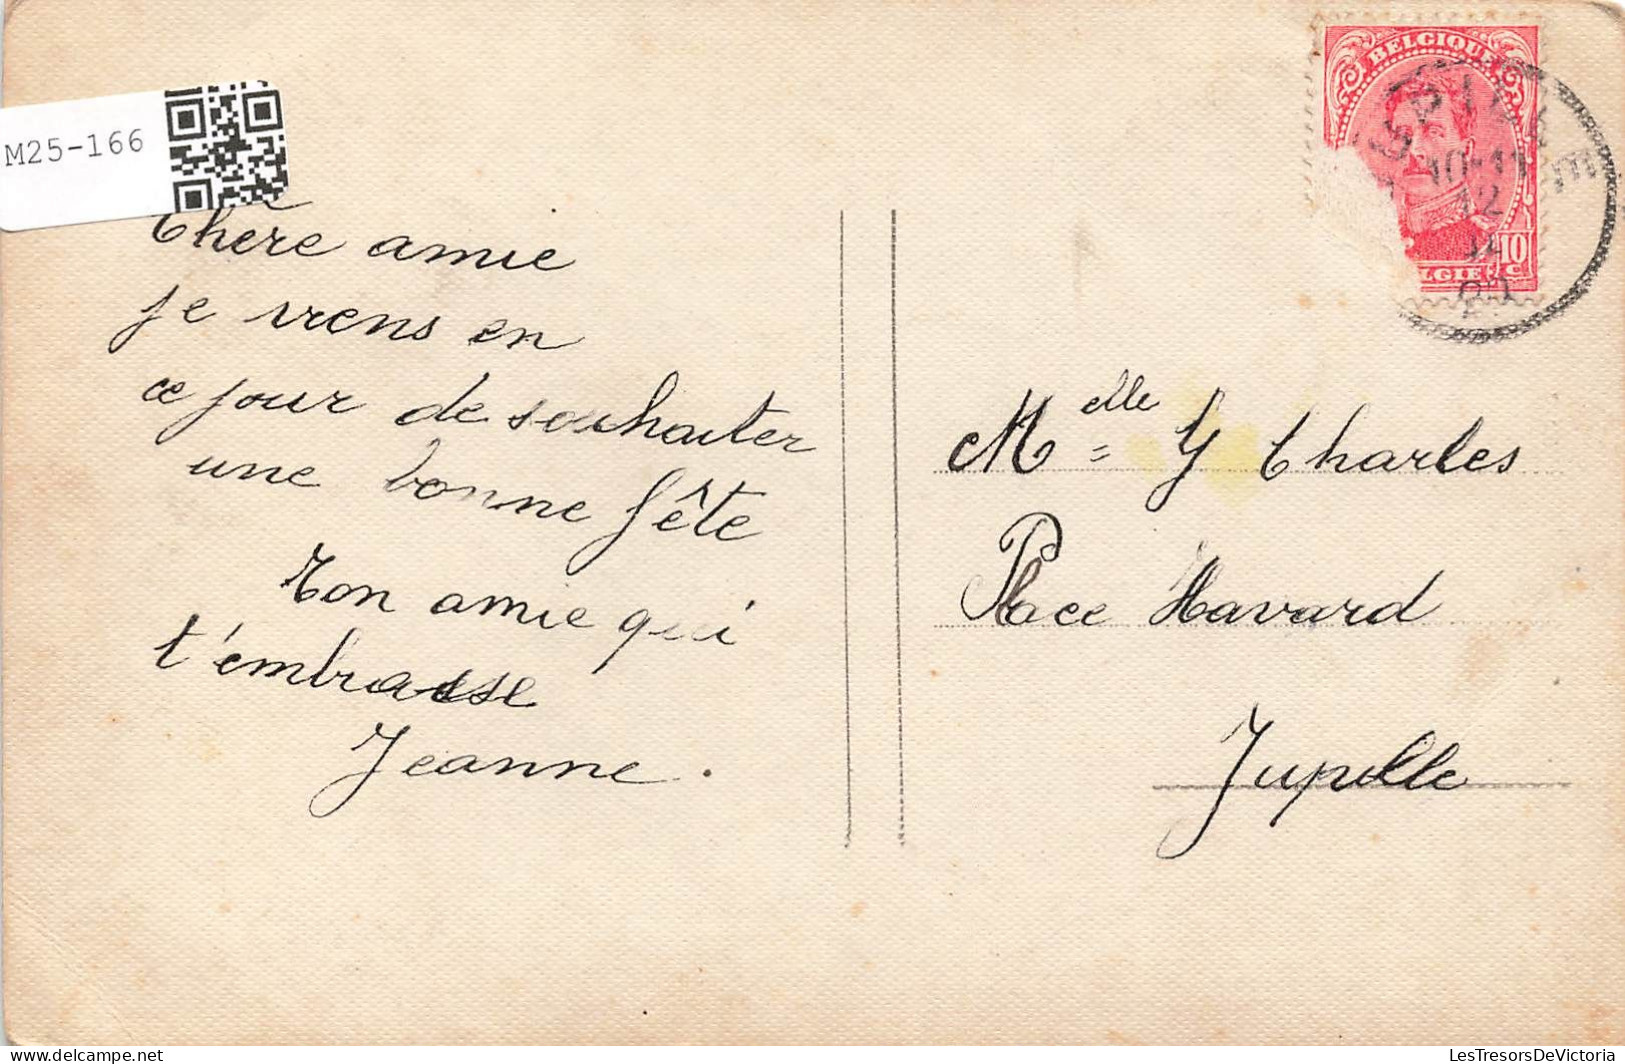 M25-166
Chère amie
je viens en
ce jour de souhaiter
une bonne fête
Ton amie qui
t'embrasse
Jeanne.
BELGIQUE
10-11 m
12
10
LGIE C
Melle G Charles
Place Havard
Jupille
LesTresorsDeVictoria
LesTresorsDeVictoria.com